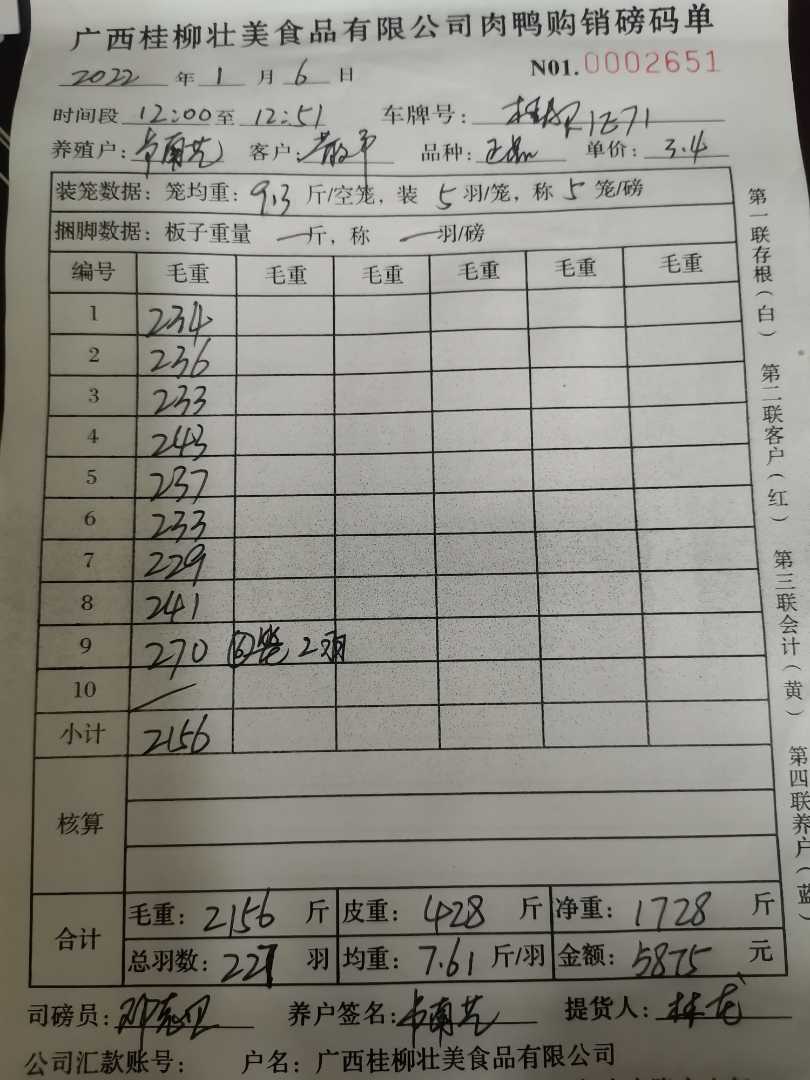 广西桂柳壮美食品有限公司肉鸭购销磅码单
2022 年 1 月 6 日 N01.0002651
时间段 12:00 至 12:51 车牌号:
养殖户: 客户: 散户 品种: 单价: 3.4
装笼数据: 笼均重: 9.3 斤/空笼, 装 5 羽/笼, 称 5 笼/磅
捆脚数据: 板子重量 一 斤, 称 一 羽/磅
编号 毛重 毛重 毛重 毛重 毛重 毛重
1 234
2 236
3 233
4 243
5 237
6 233
7 229
8 241
9 270 ⑥笼 2羽
10 /
小计 2156
核算
合计 毛重: 2156 斤 皮重: 428 斤 净重: 1728 斤
总羽数: 227 羽 均重: 7.61 斤/羽 金额: 5875 元
司磅员: 养户签名: 提货人: 林龙
公司汇款账号: 户名: 广西桂柳壮美食品有限公司
第一联存根(白) 第二联客户(红) 第三联会计(黄) 第四联养户(蓝)